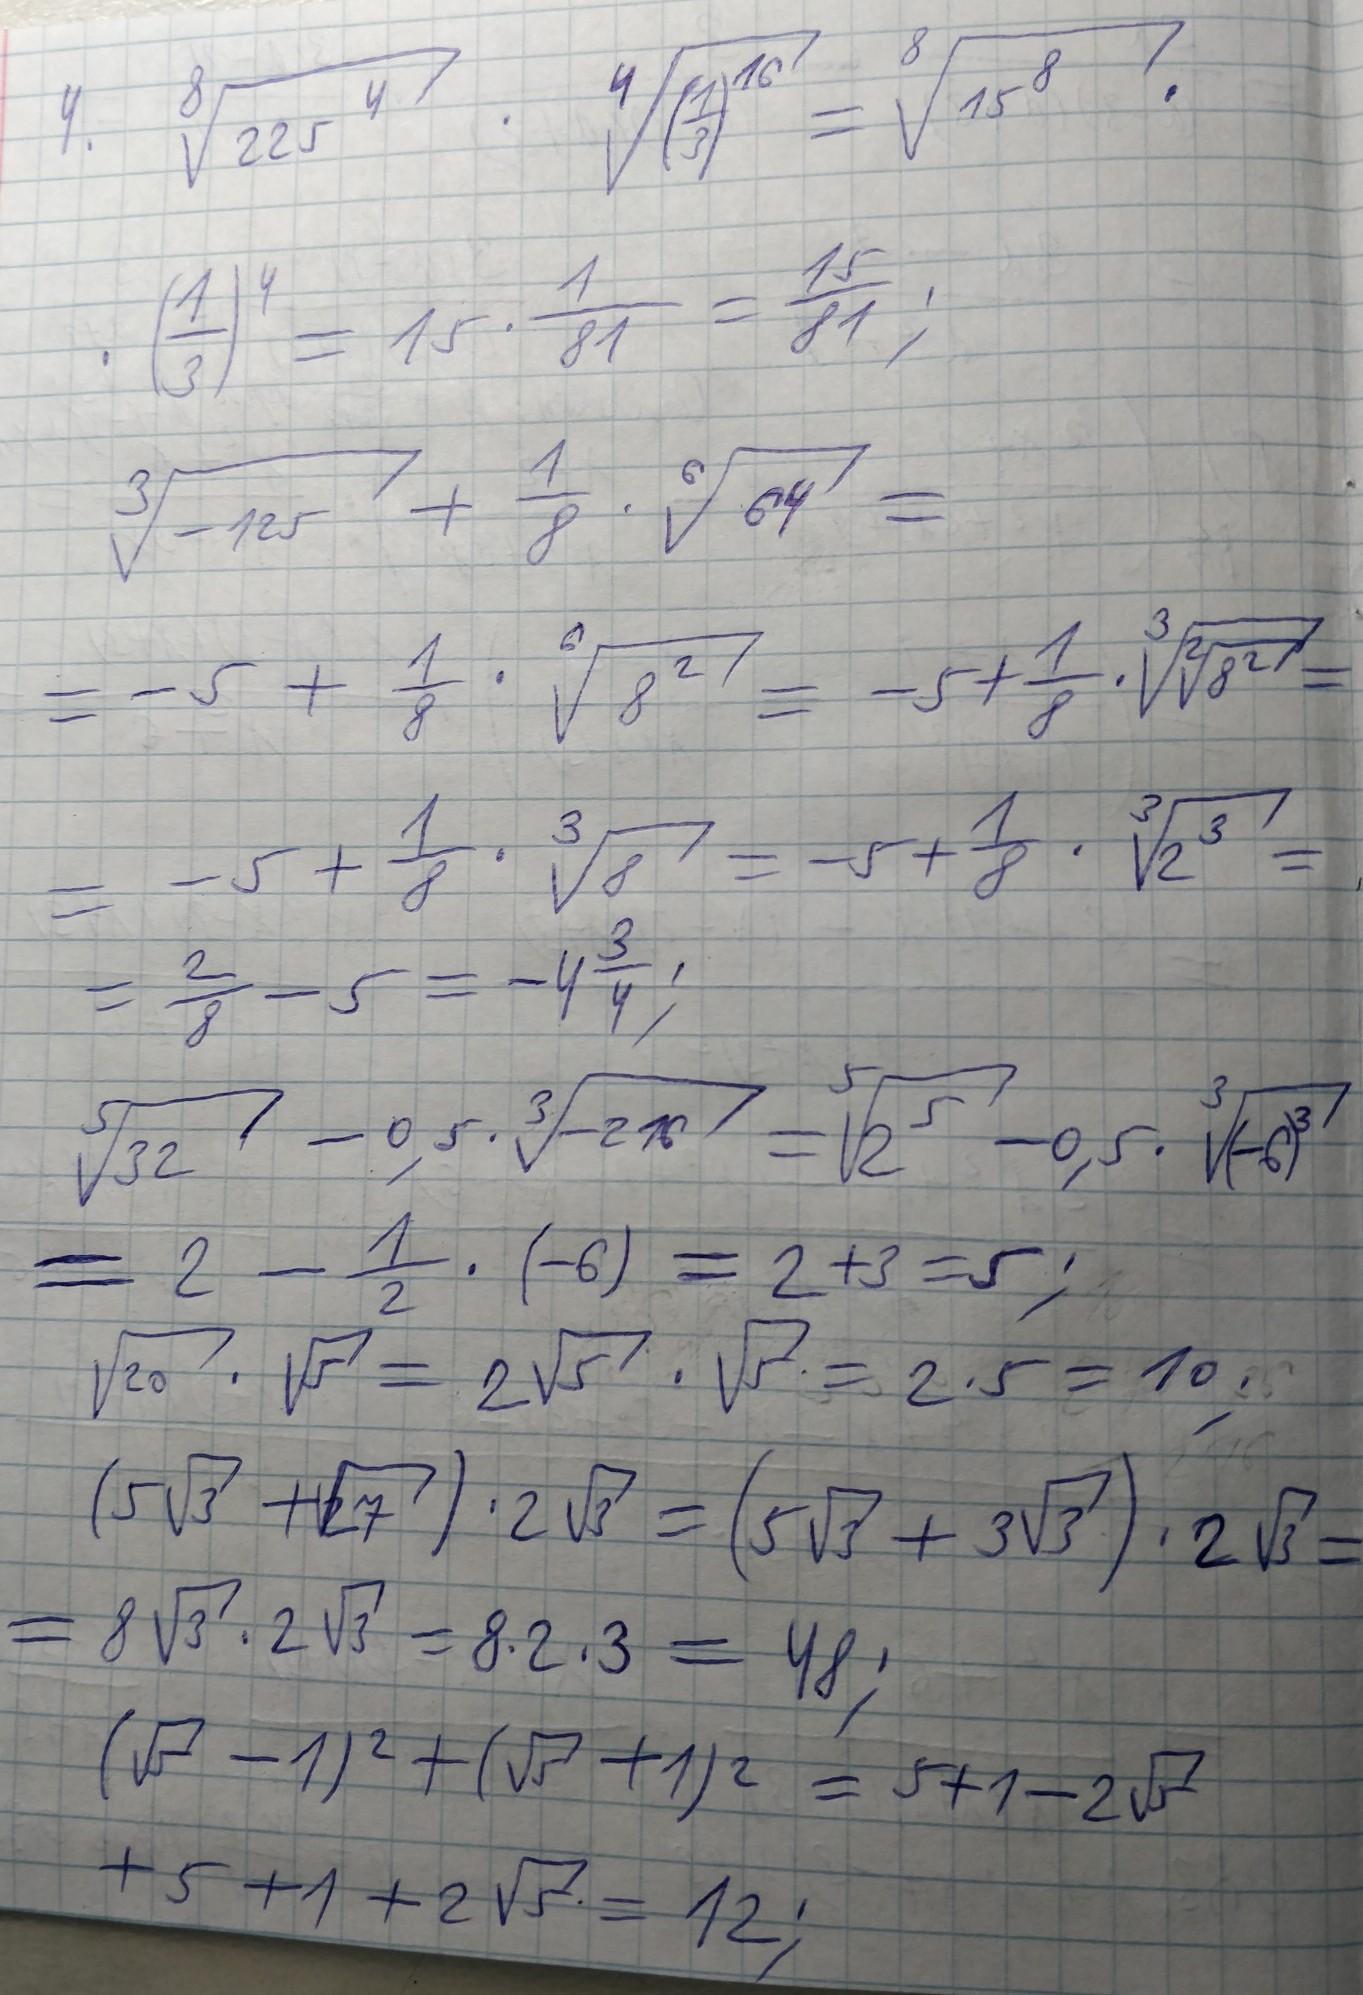 4. ⁸√(225⁴) · ⁴√((1/3)¹⁶) = ⁸√(15⁸) ·
· (1/3)⁴ = 15 · 1/81 = 15/81;
³√(-125) + 1/8 · ⁶√64 =
= -5 + 1/8 · ⁶√(8²) = -5 + 1/8 · ³√(²√(8²)) =
= -5 + 1/8 · ³√8 = -5 + 1/8 · ³√(2³) =
= 2/8 - 5 = -4 3/4;
⁵√32 - 0,5 · ³√(-216) = ⁵√(2⁵) - 0,5 · ³√((-6)³)
= 2 - 1/2 · (-6) = 2 + 3 = 5;
√20 · √5 = 2√5 · √5 = 2 · 5 = 10;
(5√3 + √27) · 2√3 = (5√3 + 3√3) · 2√3 =
= 8√3 · 2√3 = 8 · 2 · 3 = 48;
(√5 - 1)² + (√5 + 1)² = 5 + 1 - 2√5
+ 5 + 1 + 2√5 = 12;